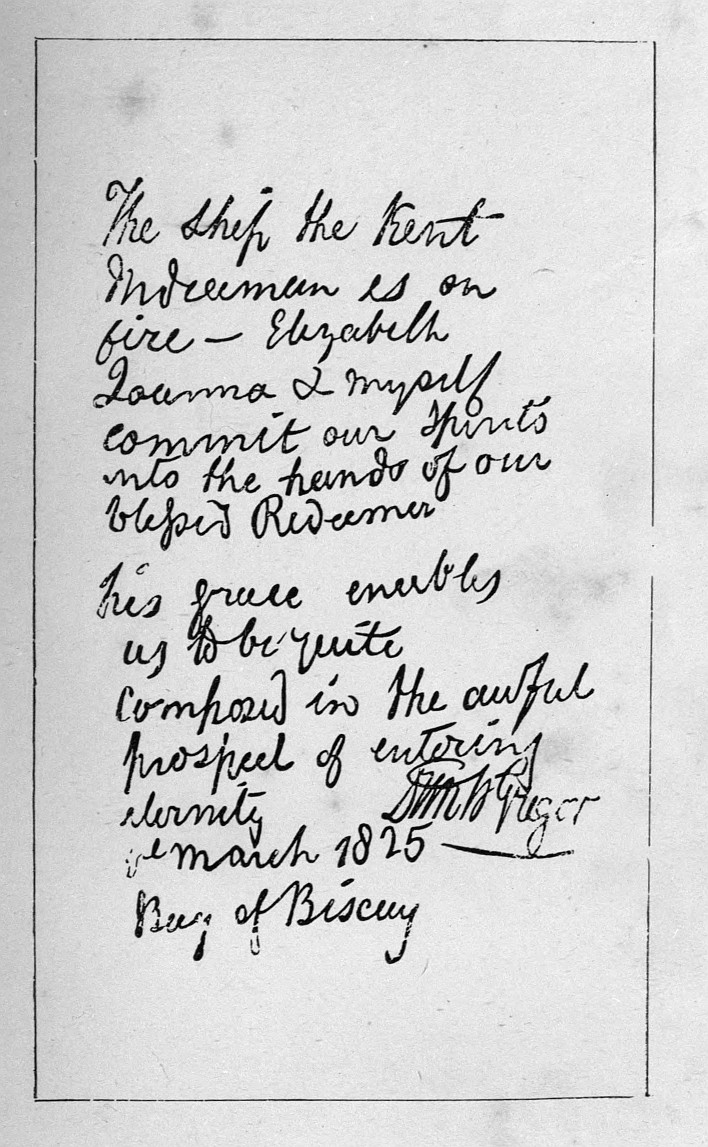 The ship the Kent
Indiaman is on
fire — Elizabeth
Joanna & myself
commit our spirits
into the hands of our
blessed Redeemer
his grace enables
us to be quite
composed in the awful
prospect of entering
eternity Dun McGregor
1st March 1825 —
Bay of Biscay